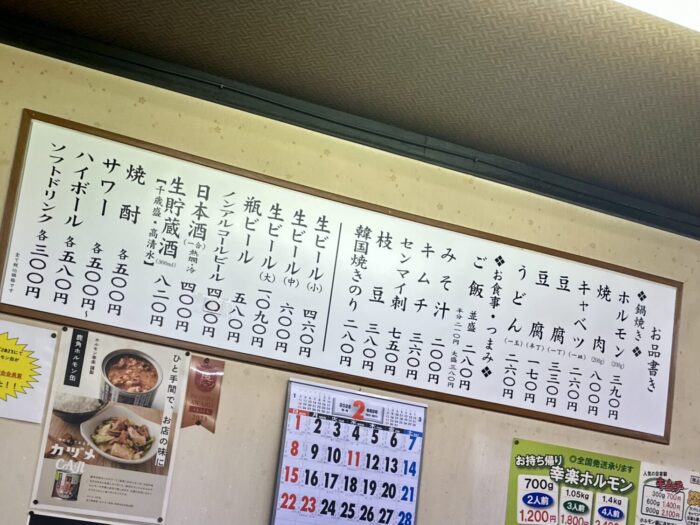 お品書き
❖鍋焼き❖
ホルモン(200g) 三九〇円
焼肉(200g) 八〇〇円
キャベツ(一皿) 二六〇円
豆腐(一丁) 二三〇円
豆腐(半丁) 一七〇円
うどん(一玉) 二六〇円
❖お食事・つまみ❖
ご飯 並盛 二八〇円
半分 二一〇円 大盛 三八〇円
みそ汁 二〇〇円
キムチ 三六〇円
センマイ刺 七五〇円
枝豆 三八〇円
韓国焼きのり 二八〇円
生ビール(小) 四六〇円
生ビール(中) 六〇〇円
生ビール(大) 一、〇九〇円
瓶ビール 七〇〇円
ノンアルコールビール 五八〇円
日本酒(一合)熱燗・冷 四〇〇円
生貯蔵酒(300ml) 八二〇円
【千歳盛・高清水】
焼酎 各五〇〇円
サワー 各五〇〇円〜
ハイボール 各五八〇円
ソフトドリンク 各三〇〇円
全て税込価格です
鹿角ホルモン缶
ホルモン幸楽 謹製
ひと手間で、お店の味に
カヅメ
CAN
2026
2
1 2 3 4 5 6 7
8 9 10 11 12 13 14
15 16 17 18 19 20 21
22 23 24 25 26 27 28
お持ち帰り ◎全国発送承ります
幸楽ホルモン
700g 1.05kg 1.4kg
2人前 3人前 4人前
1,200円 1,800円
人気の自家製
キムチ
300g 700円
600g 1,400円
900g 2,100円